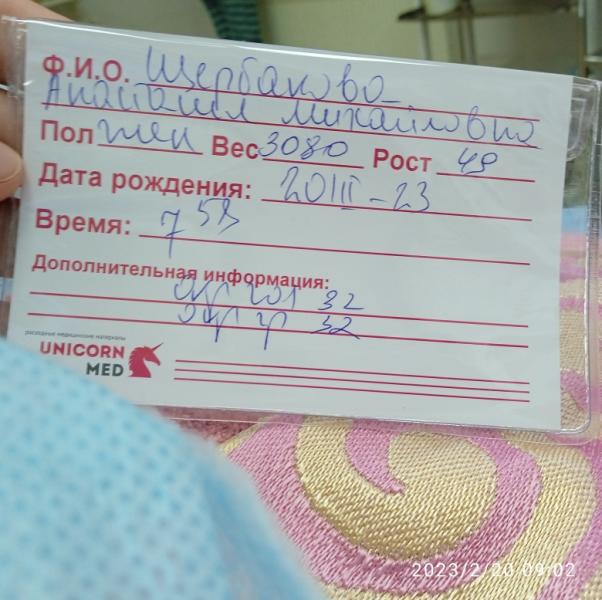 Ф.И.О. Щербакова
Анастасия Михайловна
Пол жен Вес 3080 Рост 49
Дата рождения: 20 II - 23
Время: 7 58
Дополнительная информация:
окр гол 32
окр гр 32
расходные медицинские материалы
UNICORN
MED
2023/2/20 09:02